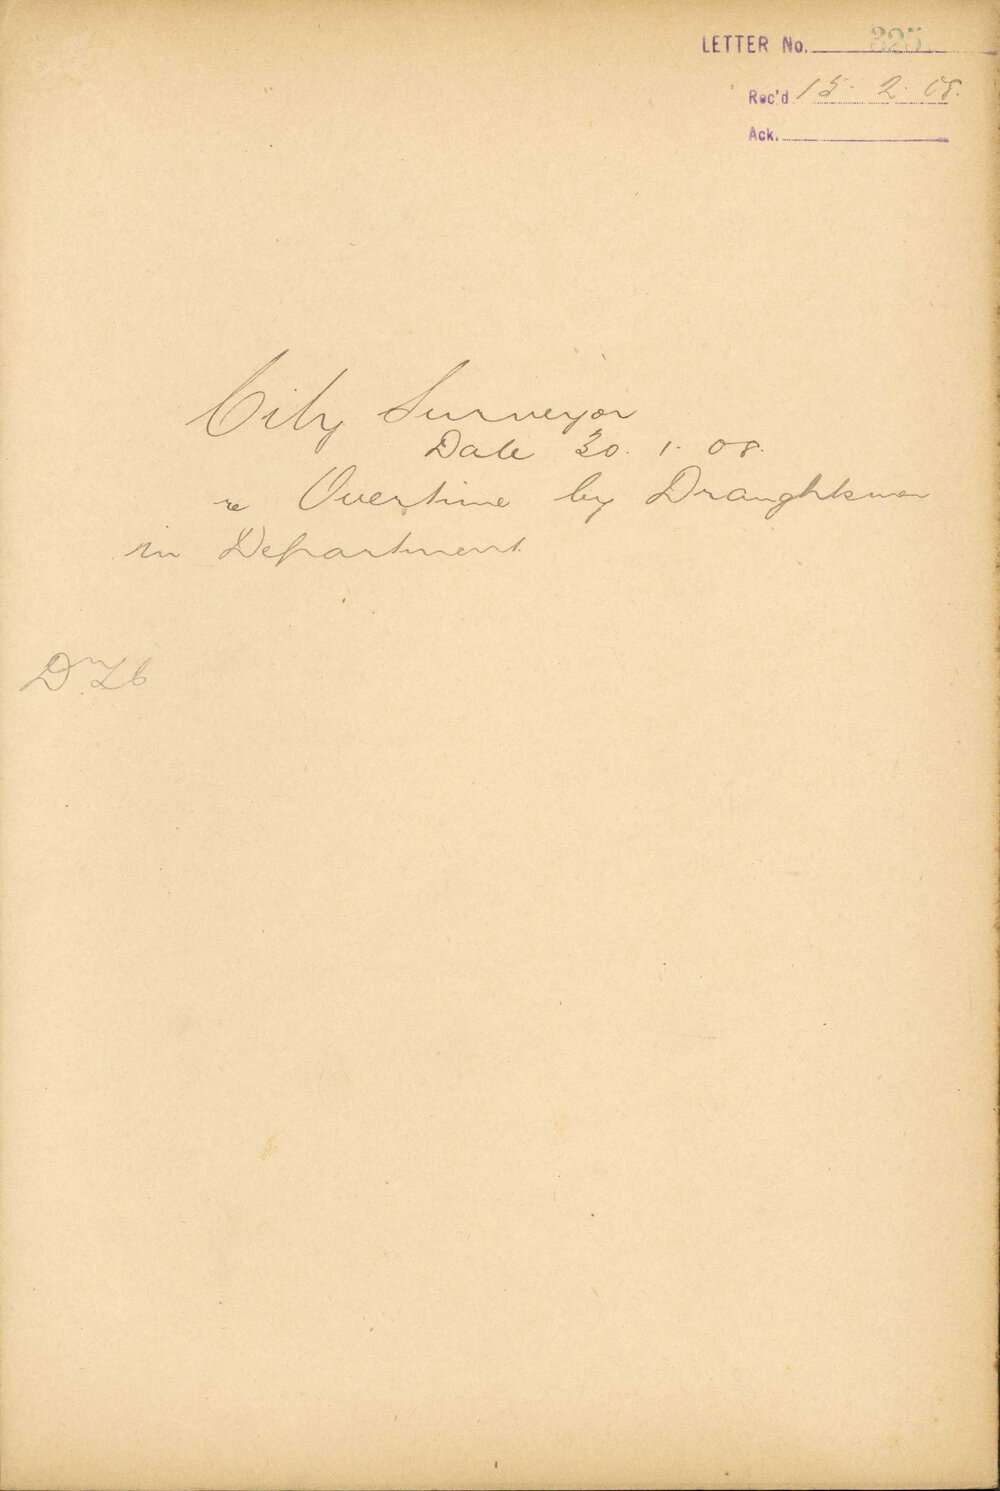 LETTER No. 325
Rec'd 15. 2. 08.
Ack.
City Surveyor
Date 30. 1. 08.
re Overtime by Draughtsmen
in Department